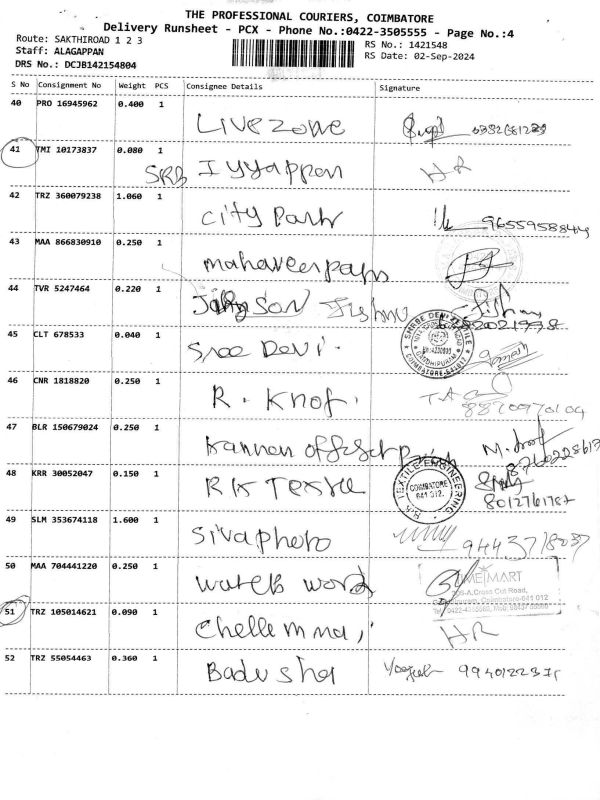 THE PROFESSIONAL COURIERS, COIMBATORE
Delivery Runsheet - PCX - Phone No.:0422-3505555 - Page No.:4
Route: SAKTHIROAD 1 2 3
RS No.: 1421548
Staff: ALAGAPPAN
RS Date: 02-Sep-2024
DRS No.: DCJB142154804
S No Consignment No Weight PCS Consignee Details Signature
40 PRO 16945962 0.400 1
Livezone
41 TMI 10173837 0.080 1
SRB Iyyappan HR
42 TRZ 360079238 1.060 1
City Park 9655958844
43 MAA 866830910 0.250 1
mahaveer papers
44 TVR 5247464 0.220 1
Johnson Jishnu
45 CLT 678533 0.040 1
Sree Devi.
SHREE DEVI TEXTILE
GANDHIPURAM
COIMBATORE-641012
46 CNR 1818820 0.250 1
R. Knof.
8870970104
47 BLR 150679024 0.250 1
Kannan offset
48 KRR 30052047 0.150 1
RK Textile
TEXTILE ENGINEERING
COIMBATORE
641 012.
49 SLM 353674118 1.600 1
Siva photo 9443718037
50 MAA 704441220 0.250 1
watch world
TIME MART
Cross Cut Road,
Coimbatore-641 012
51 TRZ 105014621 0.090 1
Chellammal HR
52 TRZ 55054463 0.360 1
Badusha